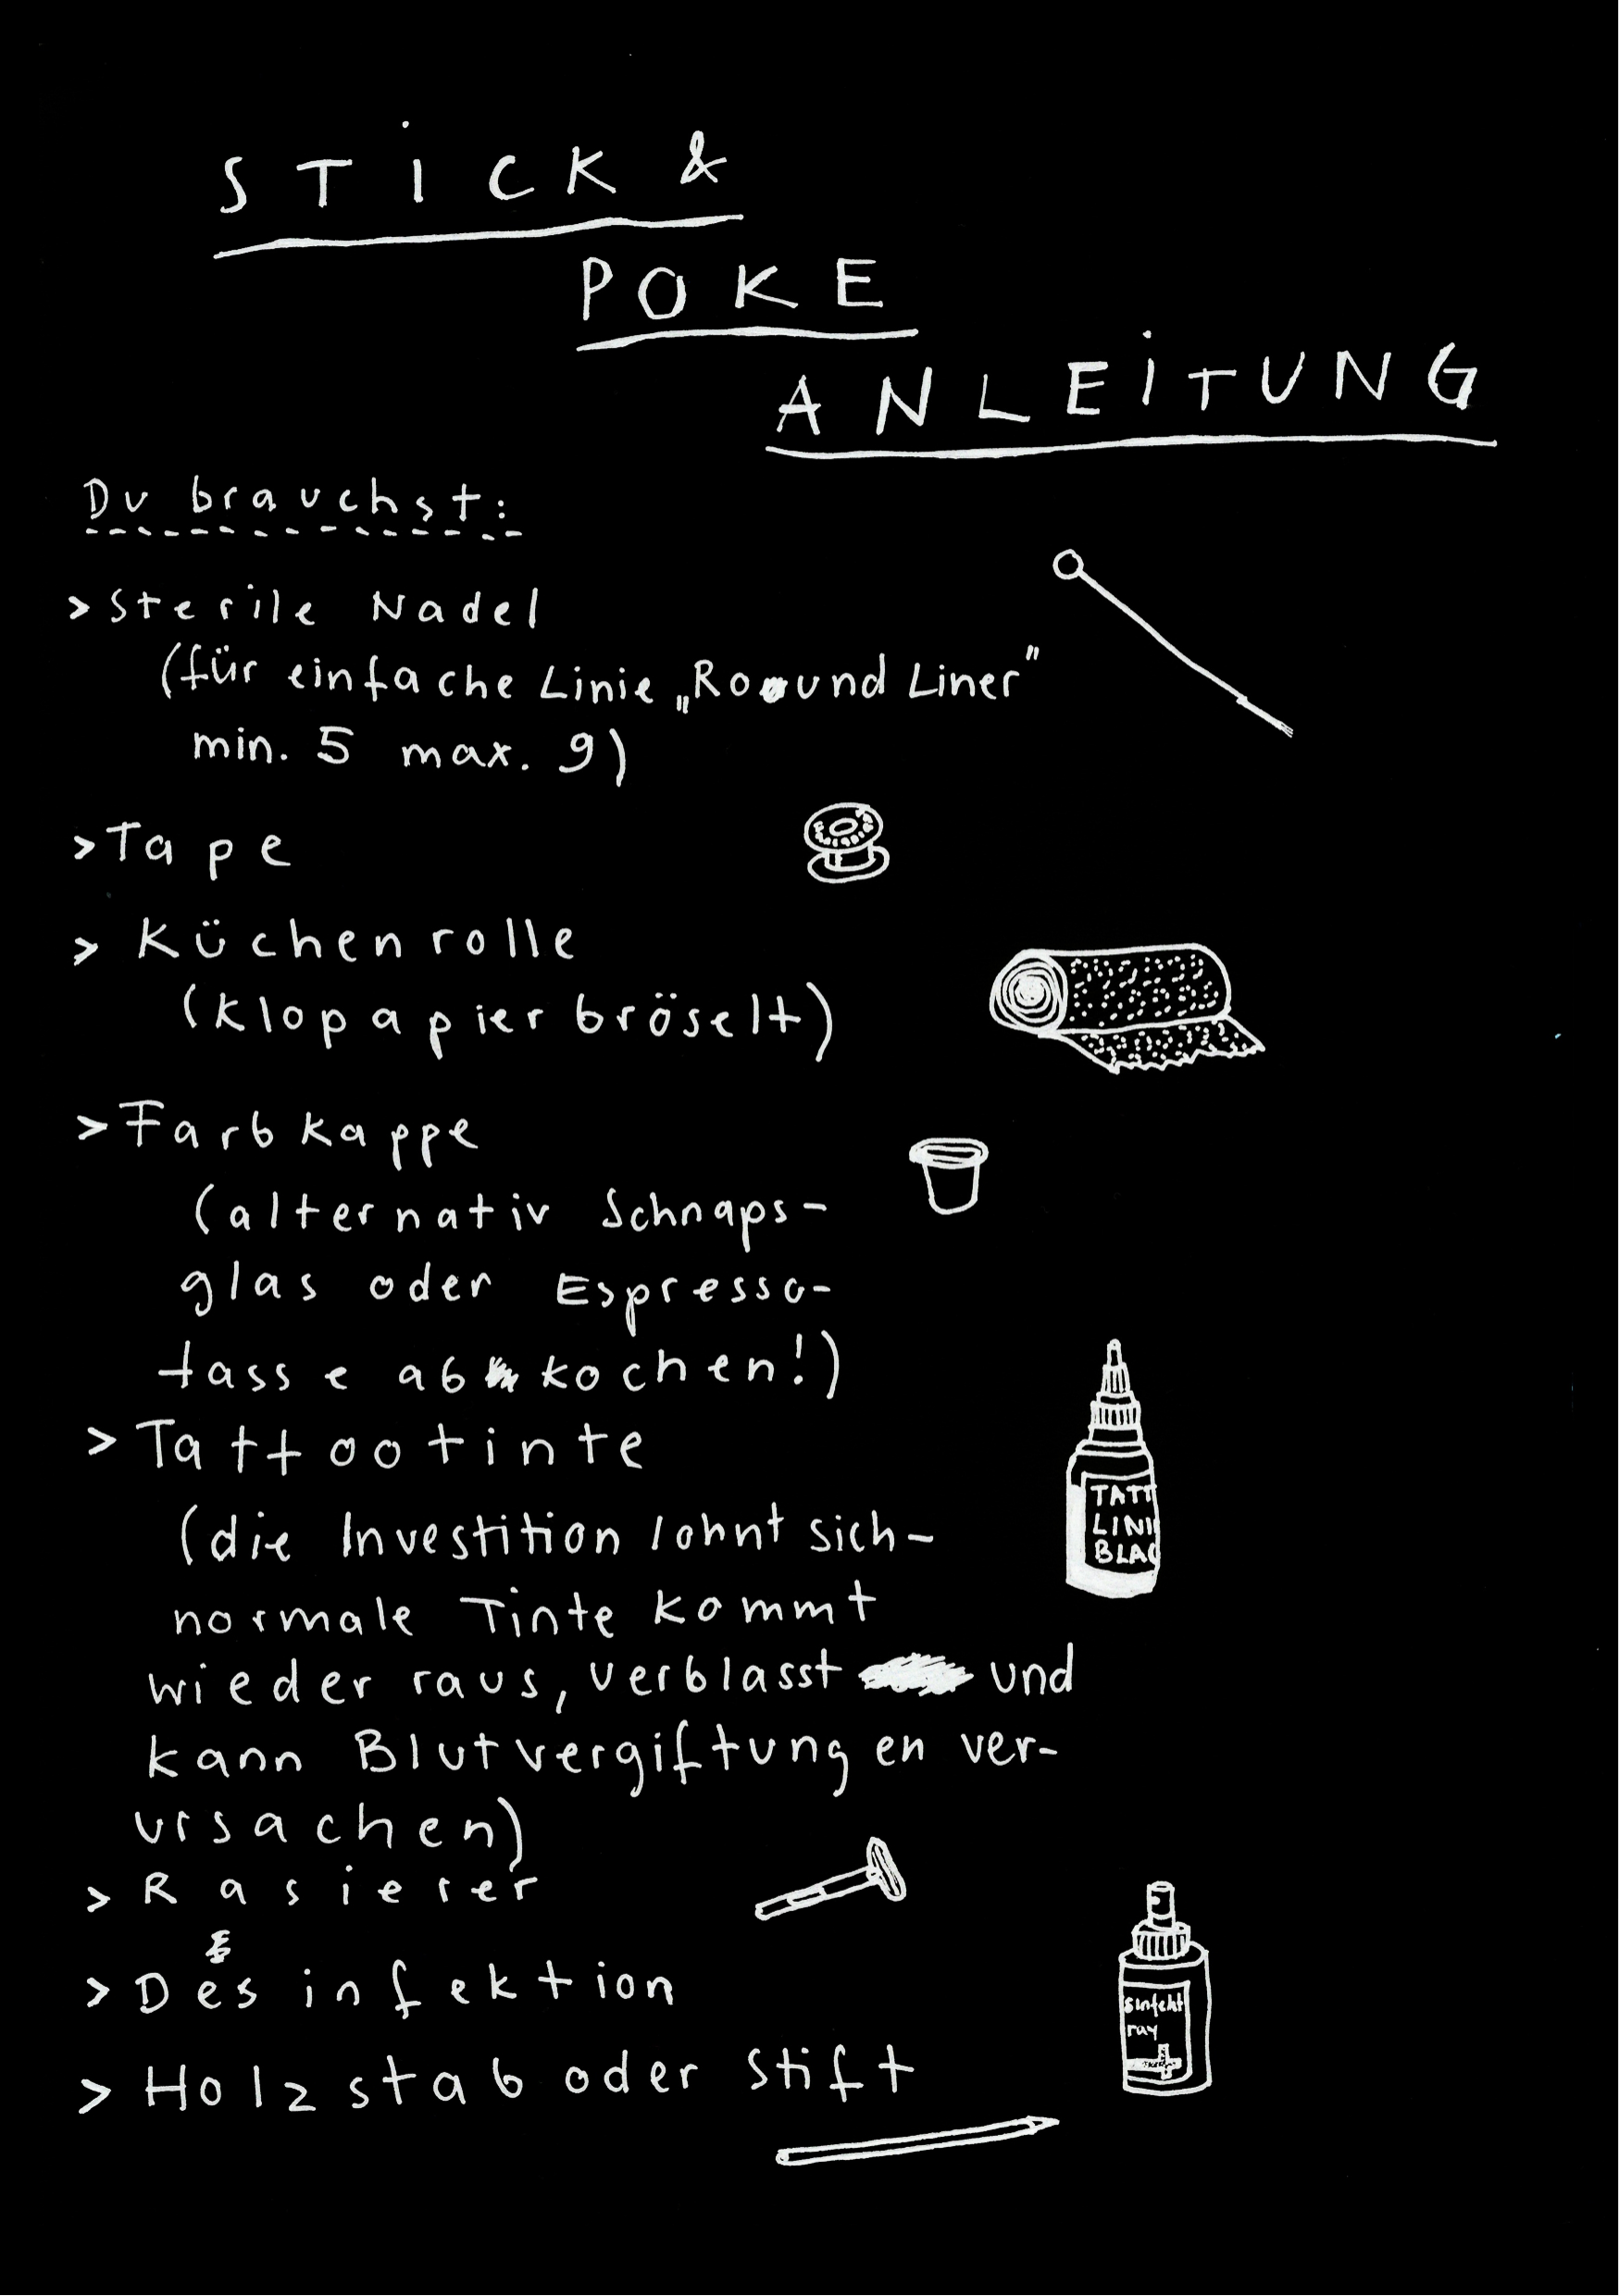 STiCK &
POKE
ANLEiTUNG
Du brauchst:
> Sterile Nadel
(für einfache Linie „Round Liner"
min. 5 max. 9)
> Tape
> Küchenrolle
(Klopapier bröselt)
> Farbkappe
(alternativ Schnaps-
glas oder Espresso-
tasse abkochen!)
> Tattootinte
(die Investition lohnt sich-
normale Tinte kommt
wieder raus, verblasst und
kann Blutvergiftungen ver-
ursachen)
TATT
LINI
BLAC
> Rasierer
> Desinfektion
sinfekt
ray
> Holzstab oder Stift